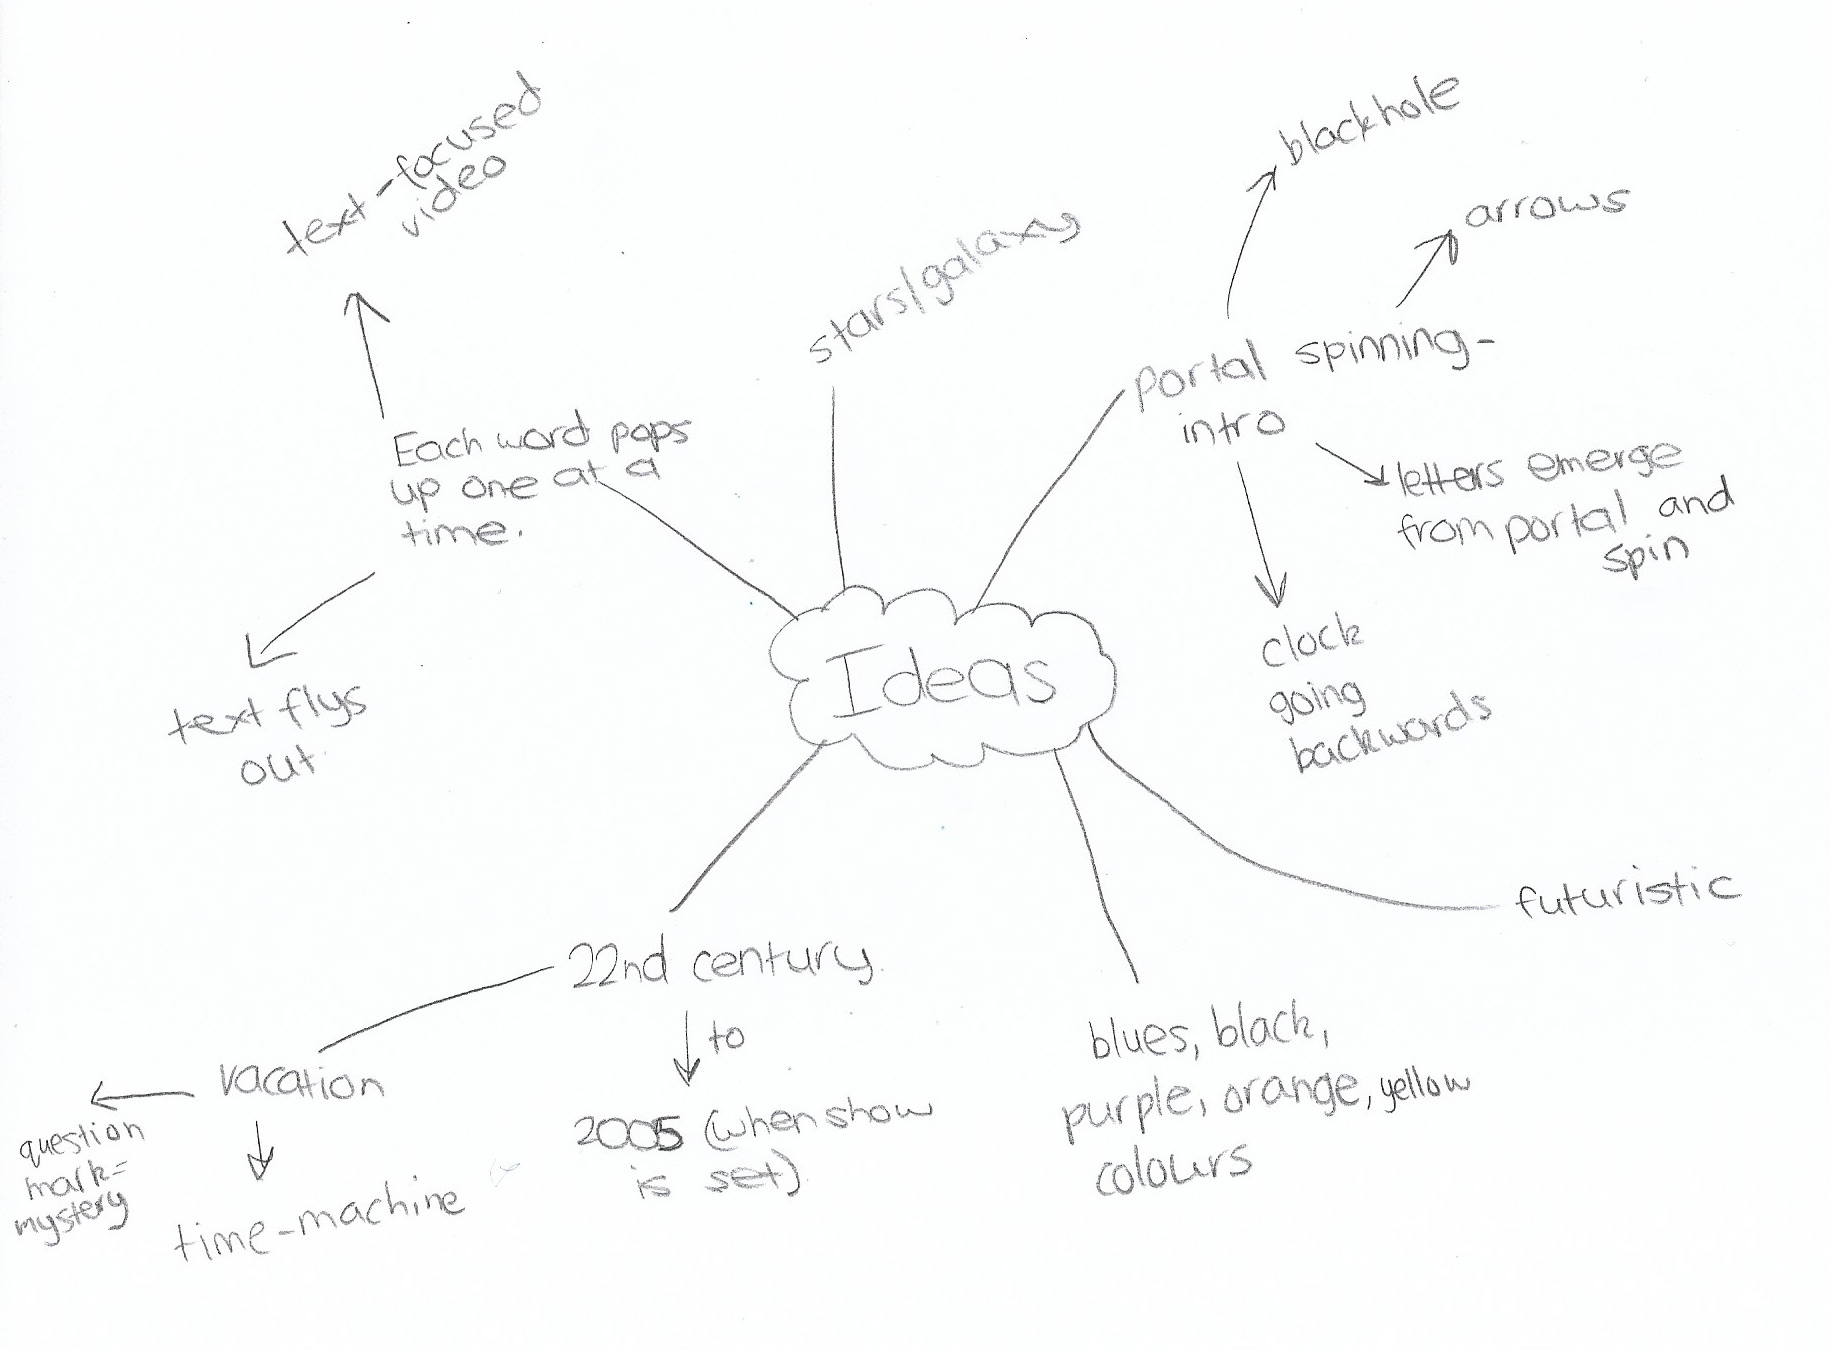 text-focused
video
blackhole
arrows
stars/galaxy
portal spinning-
intro
Each word pops
up one at a
time.
letters emerge
from portal and
spin
clock
going
backwards
Ideas
text flys
out.
futuristic
22nd century.
to
2005 (when show
is set).
blues, black,
purple, orange, yellow
colours
vacation
question
mark=
mystery
time-machine